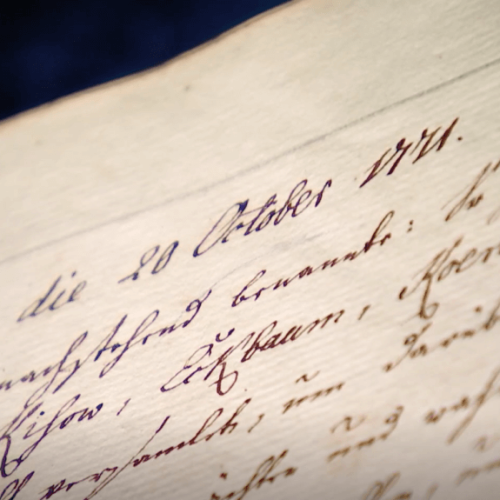 die 20 October 1771.
nachstehend benannte: So
Kihow, Eckbaum, Koen
versamlet, um darüb
und